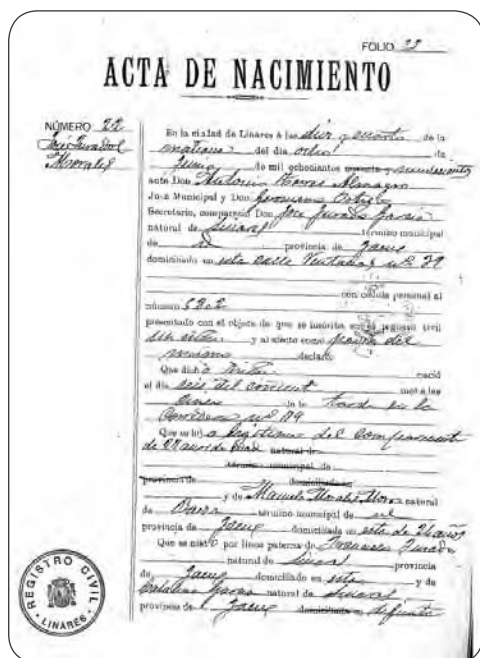 FOLIO 23
ACTA DE NACIMIENTO
NÚMERO 22
José Jurado
Morales
En la ciudad de Linares á las diez y cuarto de la
mañana del día ocho de
Junio de mil ochocientos noventa
ante Don Antonio
Juez Municipal y Don
Secretario, compareció Don José Jurado García
natural de Linares término municipal
de id provincia de Jaen
domiciliado en esta calle Ventanas nº 39
con cédula personal al
número 5302
presentado con el objeto de que se inscriba en el registro civil
un niño y al efecto como padre del
mismo declaró:
Que dicho niño nació
el día seis del corriente mes á las
cinco de la tarde en la
Corredera nº 89
Que es hijo legítimo del compareciente
de 27 años de edad natural de
término municipal de
provincia de domiciliado en
y de Manuela Morales natural
de término municipal de id
provincia de Jaen domiciliada en esta de 24 años
Que es nieto por línea paterna de Francisco Jurado
natural de Linares provincia
de Jaen domiciliado en esta y de
Catalina García natural de Linares
provincia de Jaen domiciliada en difunta
REGISTRO CIVIL
LINARES